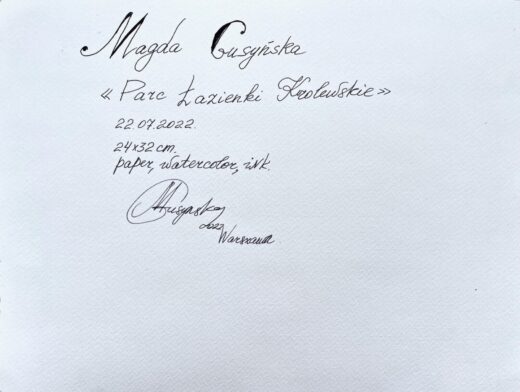 Magda Gusyńska
« Parc Łazienki Krolewskie »
22.07.2022.
24x32 cm.
paper, watercolor, ink.
MGusynska
2022
Warszawa.